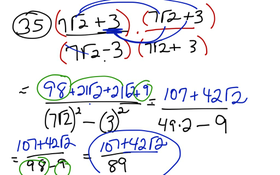 35 (7√2 + 3) / (7√2 - 3) · (7√2 + 3) / (7√2 + 3)
= (98 + 21√2 + 21√2 + 9) / ((7√2)² - (3)²) = (107 + 42√2) / (49·2 - 9)
= (107 + 42√2) / (98 - 9) = (107 + 42√2) / 89